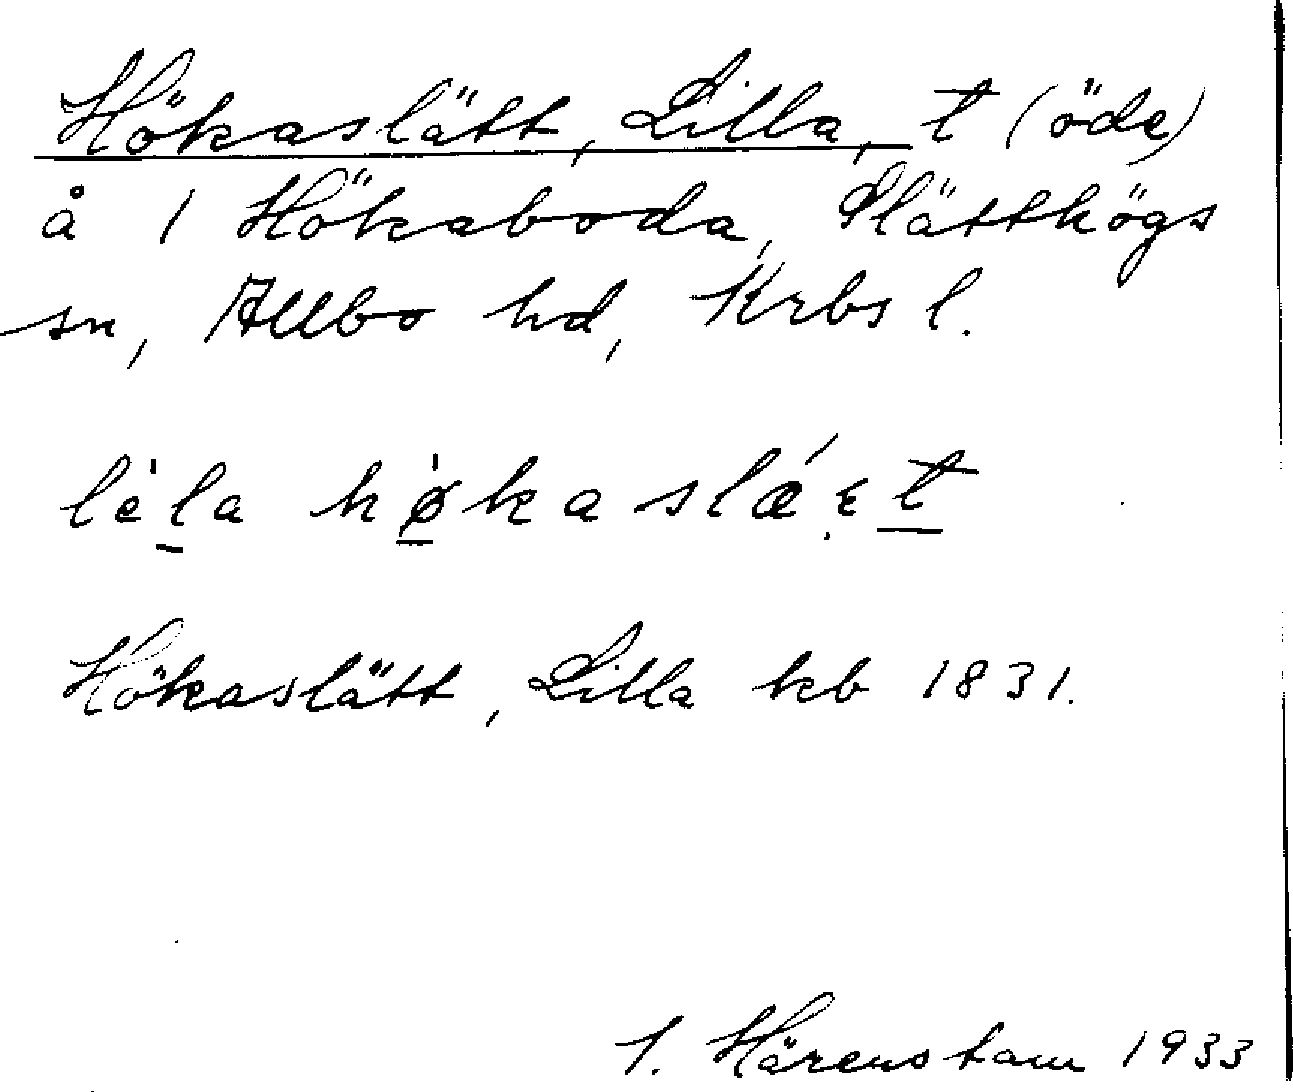 Hökaslätt, Lilla, t (öde)
å 1 Hökaboda, Slätthögs
sn, Allbo hd, Krbs l.
lèla hø̀kaslǽ.ɛt
Hökaslätt, Lilla kb 1831.
1. Härenstam 1933